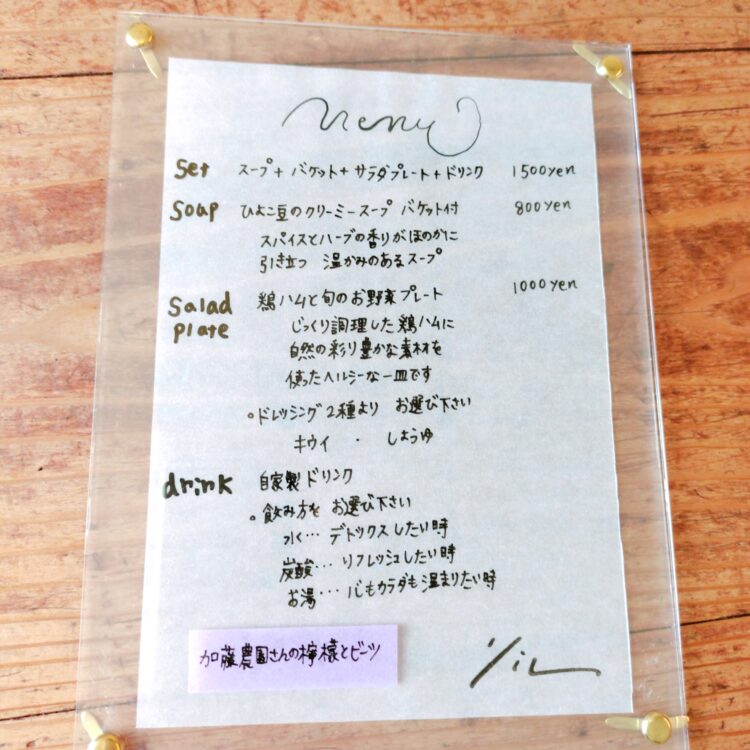 menu
Set スープ+バケット+サラダプレート+ドリンク 1500yen
Soup ひよこ豆のクリーミースープ バケット付 800yen
スパイスとハーブの香りがほのかに
引き立つ 温かみのあるスープ
Salad plate 鶏ハムと旬のお野菜プレート 1000yen
じっくり調理した鶏ハムに
自然の彩り豊かな素材を
使ったヘルシーな一皿です
。ドレッシング2種より お選び下さい
キウイ ・ しょうゆ
drink 自家製ドリンク
。飲み方を お選び下さい
水… デトックスしたい時
炭酸… リフレッシュしたい時
お湯… 心もカラダも温まりたい時
加藤農園さんの檸檬とビーツ